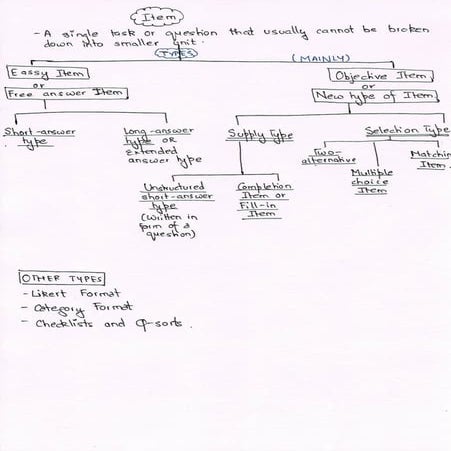 Item
- A single task or question that usually cannot be broken
down into smaller unit.
TYPES
(MAINLY)
Eassy Item
or
Free answer Item
Objective Item
or
New type of Item
Short-answer
type
Long-answer
type OR
Extended
answer type
Supply Type
Selection Type
Two-
alternative
Multiple
choice
Item
Matching
Item
Unstructured
short-answer
type
(Written in
form of a
question)
Completion
Item or
Fill-in
Item
OTHER TYPES
- Likert Format
- Category Format
- Checklists and Q-sorts.